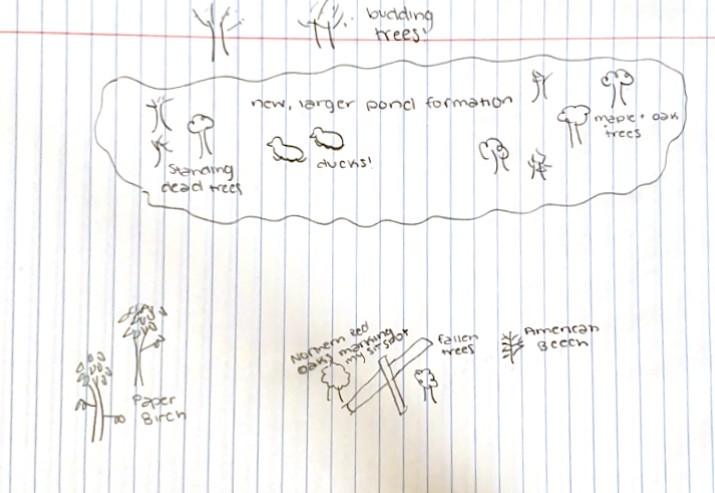 budding
trees!
new, larger pond formation
maple + oak
trees
ducks!
standing
dead trees
Northern Red
oaks marking
my sit spot
fallen
trees
American
Beech
Paper
Birch